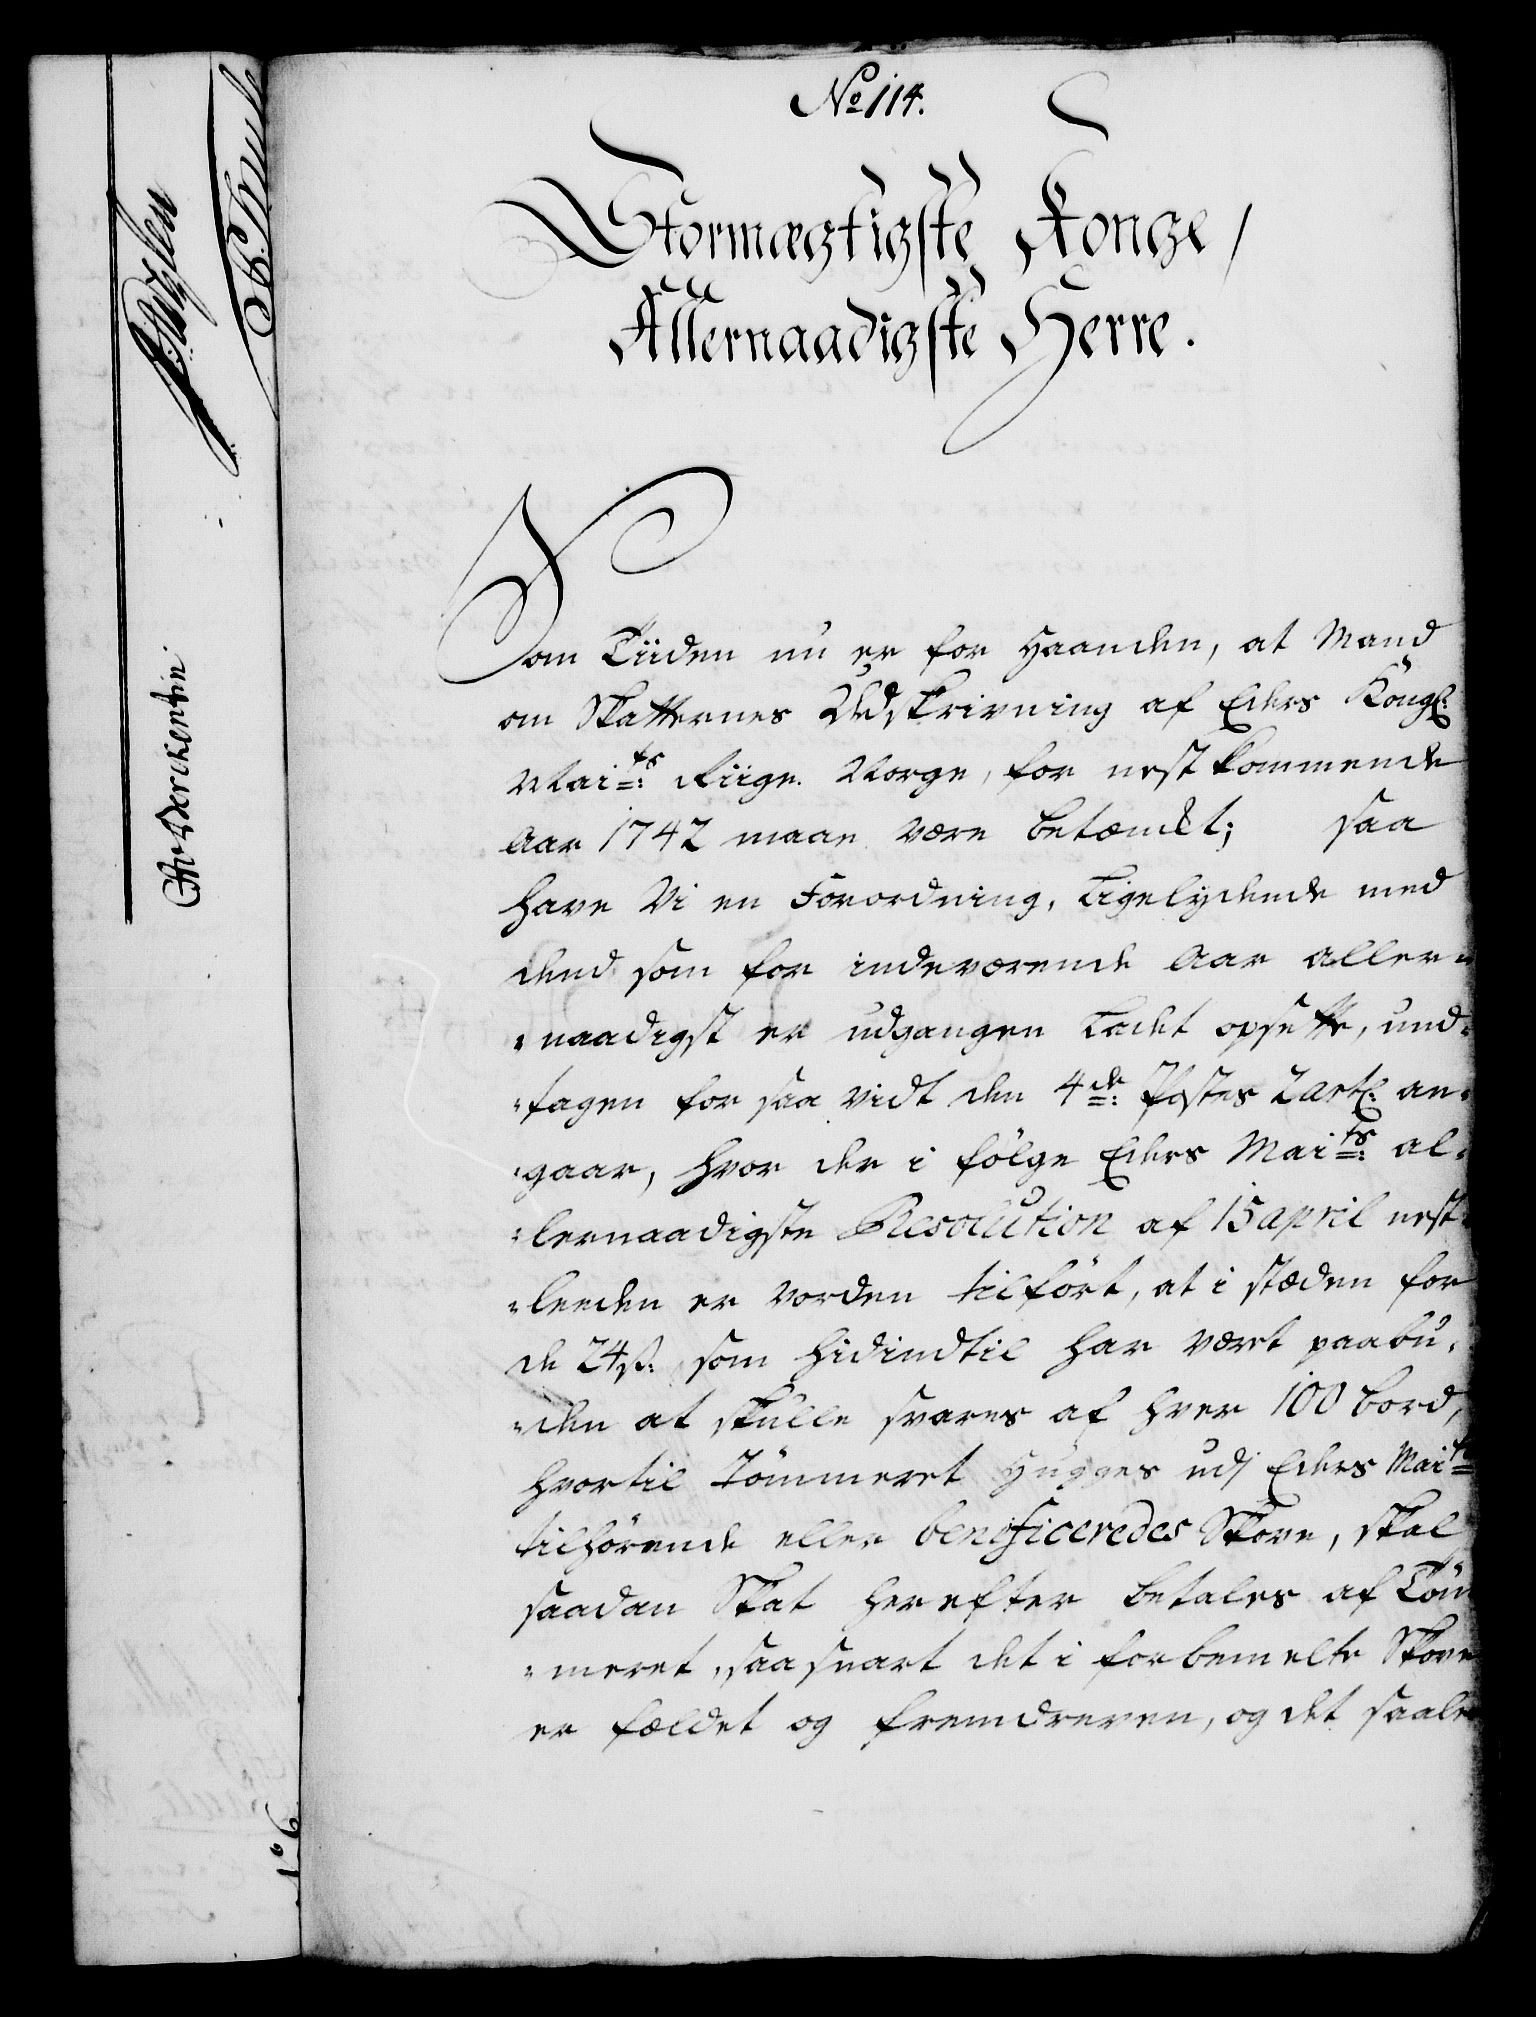 No 114.
Stormægtigste Konge,
Allernaadigste Herre.
Som Tiiden nu er for Haanden, at Mand
om Skatternes Udskrivning af Eders Kongl:
Mai:ts Riige Norge, for nest kommende
Aar 1742 maae være betænkt; saa
have Vi en Forordning, Ligelydende med
dend som for indeværende Aar aller¬
¬naadigst er udgangen Ladet opsette, und¬
¬tagen for saa vidt den 4de: Postes Tart: an¬
¬gaar, hvor der i følge Eders Mai:ts al¬
¬lernaadigste Resolution af 15 april nest¬
¬leeden er vorden tilført, at i stæden for
de 24 s: som hidindtil har været paabu¬
¬den at skulle svares af hver 100 bord,
hvortil Tømmeret Hugges udj Eders Mai:ts
tilhørende eller beneficeredes Skove, skal
saadan Skat herefter betales af Tøm
¬meret, saasnart det i forbemelte Skove
er fældet og fremdreven, og det saale
No 6